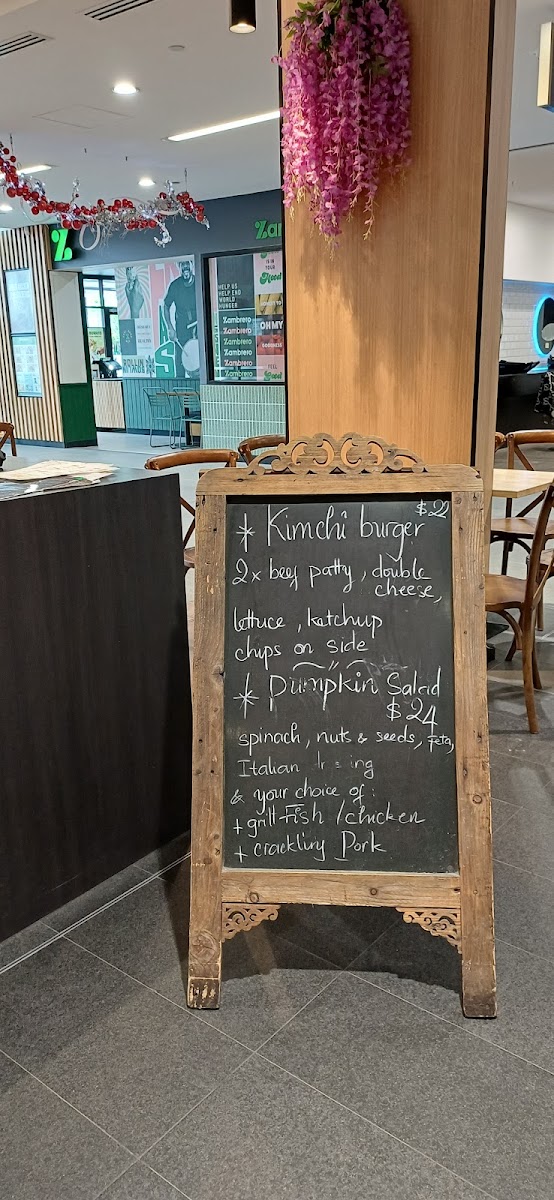 Zambrero
IS IN
YOUR
Mood
HELP US
HELP END
WORLD
HUNGER
Zambrero
Zambrero
Zambrero
Zambrero
Zambrero
OH MY
FEEL
$22
* Kimchi burger
2x beef patty, double
cheese,
lettuce, ketchup
chips on side
* Pumpkin Salad
$24
spinach, nuts & seeds, feta,
Italian
& your choice of:
+ grill Fish / chicken
+ crackling Pork